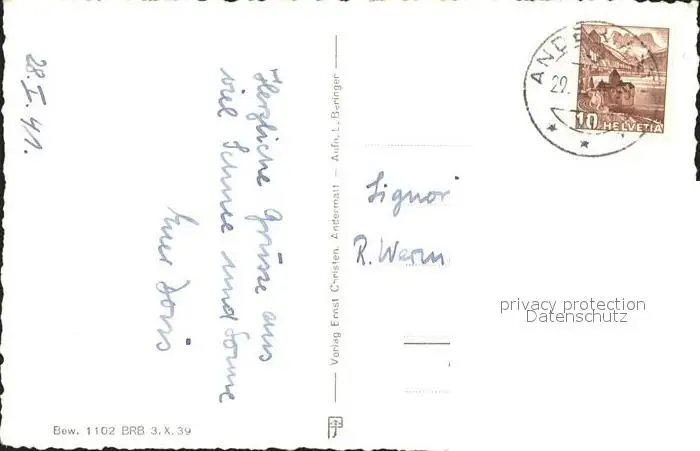 28. I. 41.
Herzliche Grüsse aus
viel Schnee und Sonne
Euer Doris
Verlag Ernst Christen, Andermatt — Aufn. L. Beringer
Bew. 1102 BRB 3.X.39
ANDERMATT
29.
10 HELVETIA
Signori
R. Warm
privacy protection
Datenschutz